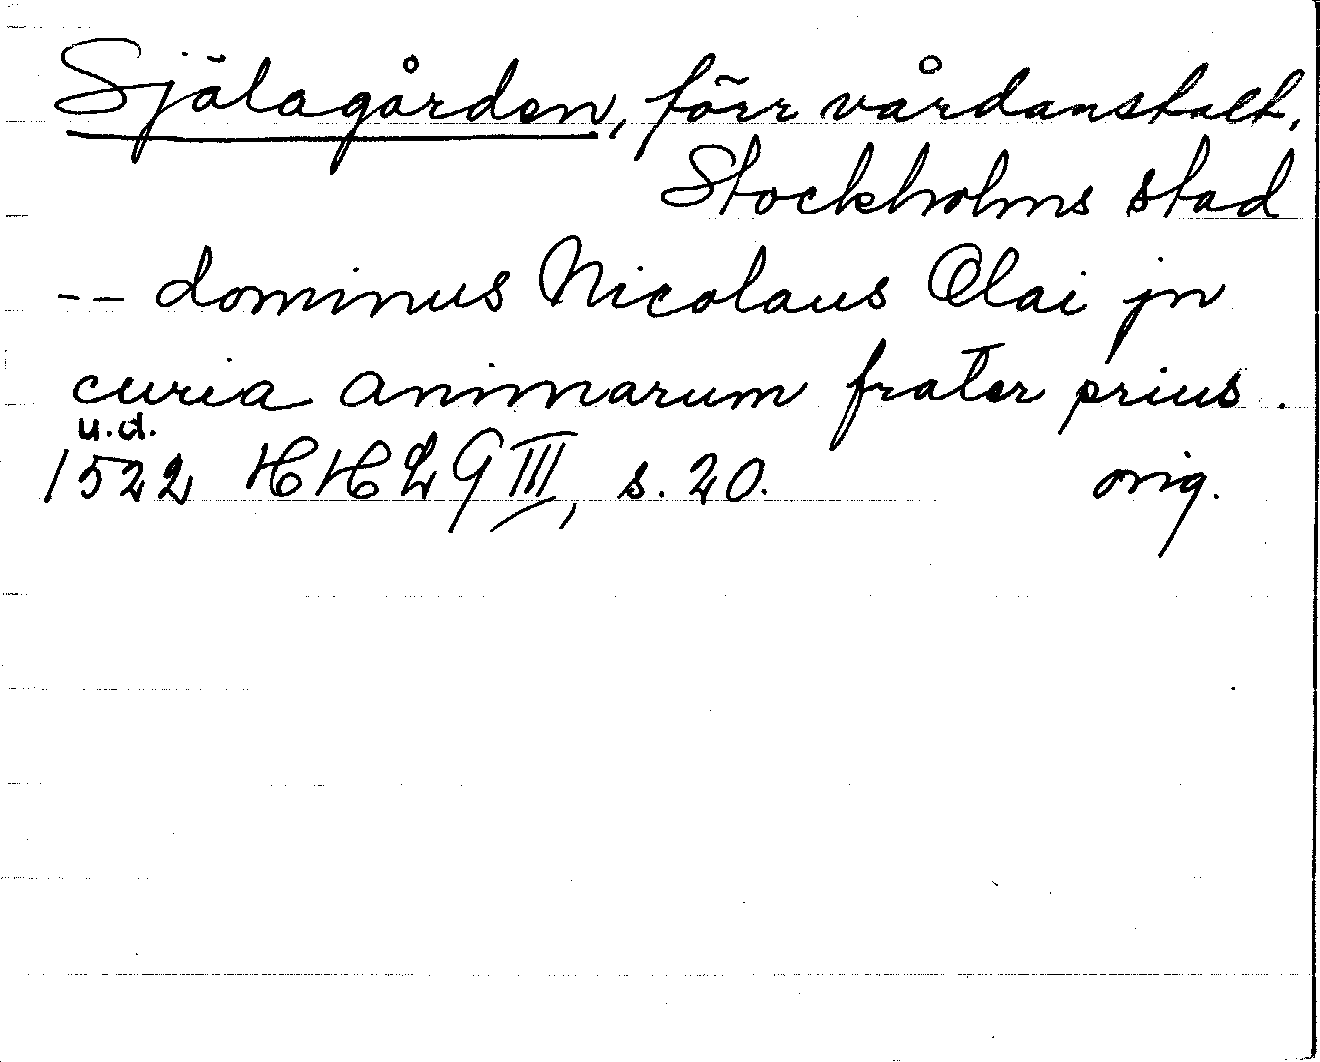 Själagården, förr vårdanstalt,
Stockholms stad
-- dominus Nicolaus Olai jn
curia animarum frater prius.
u.d.
1522 HHLG III, s. 20. orig.